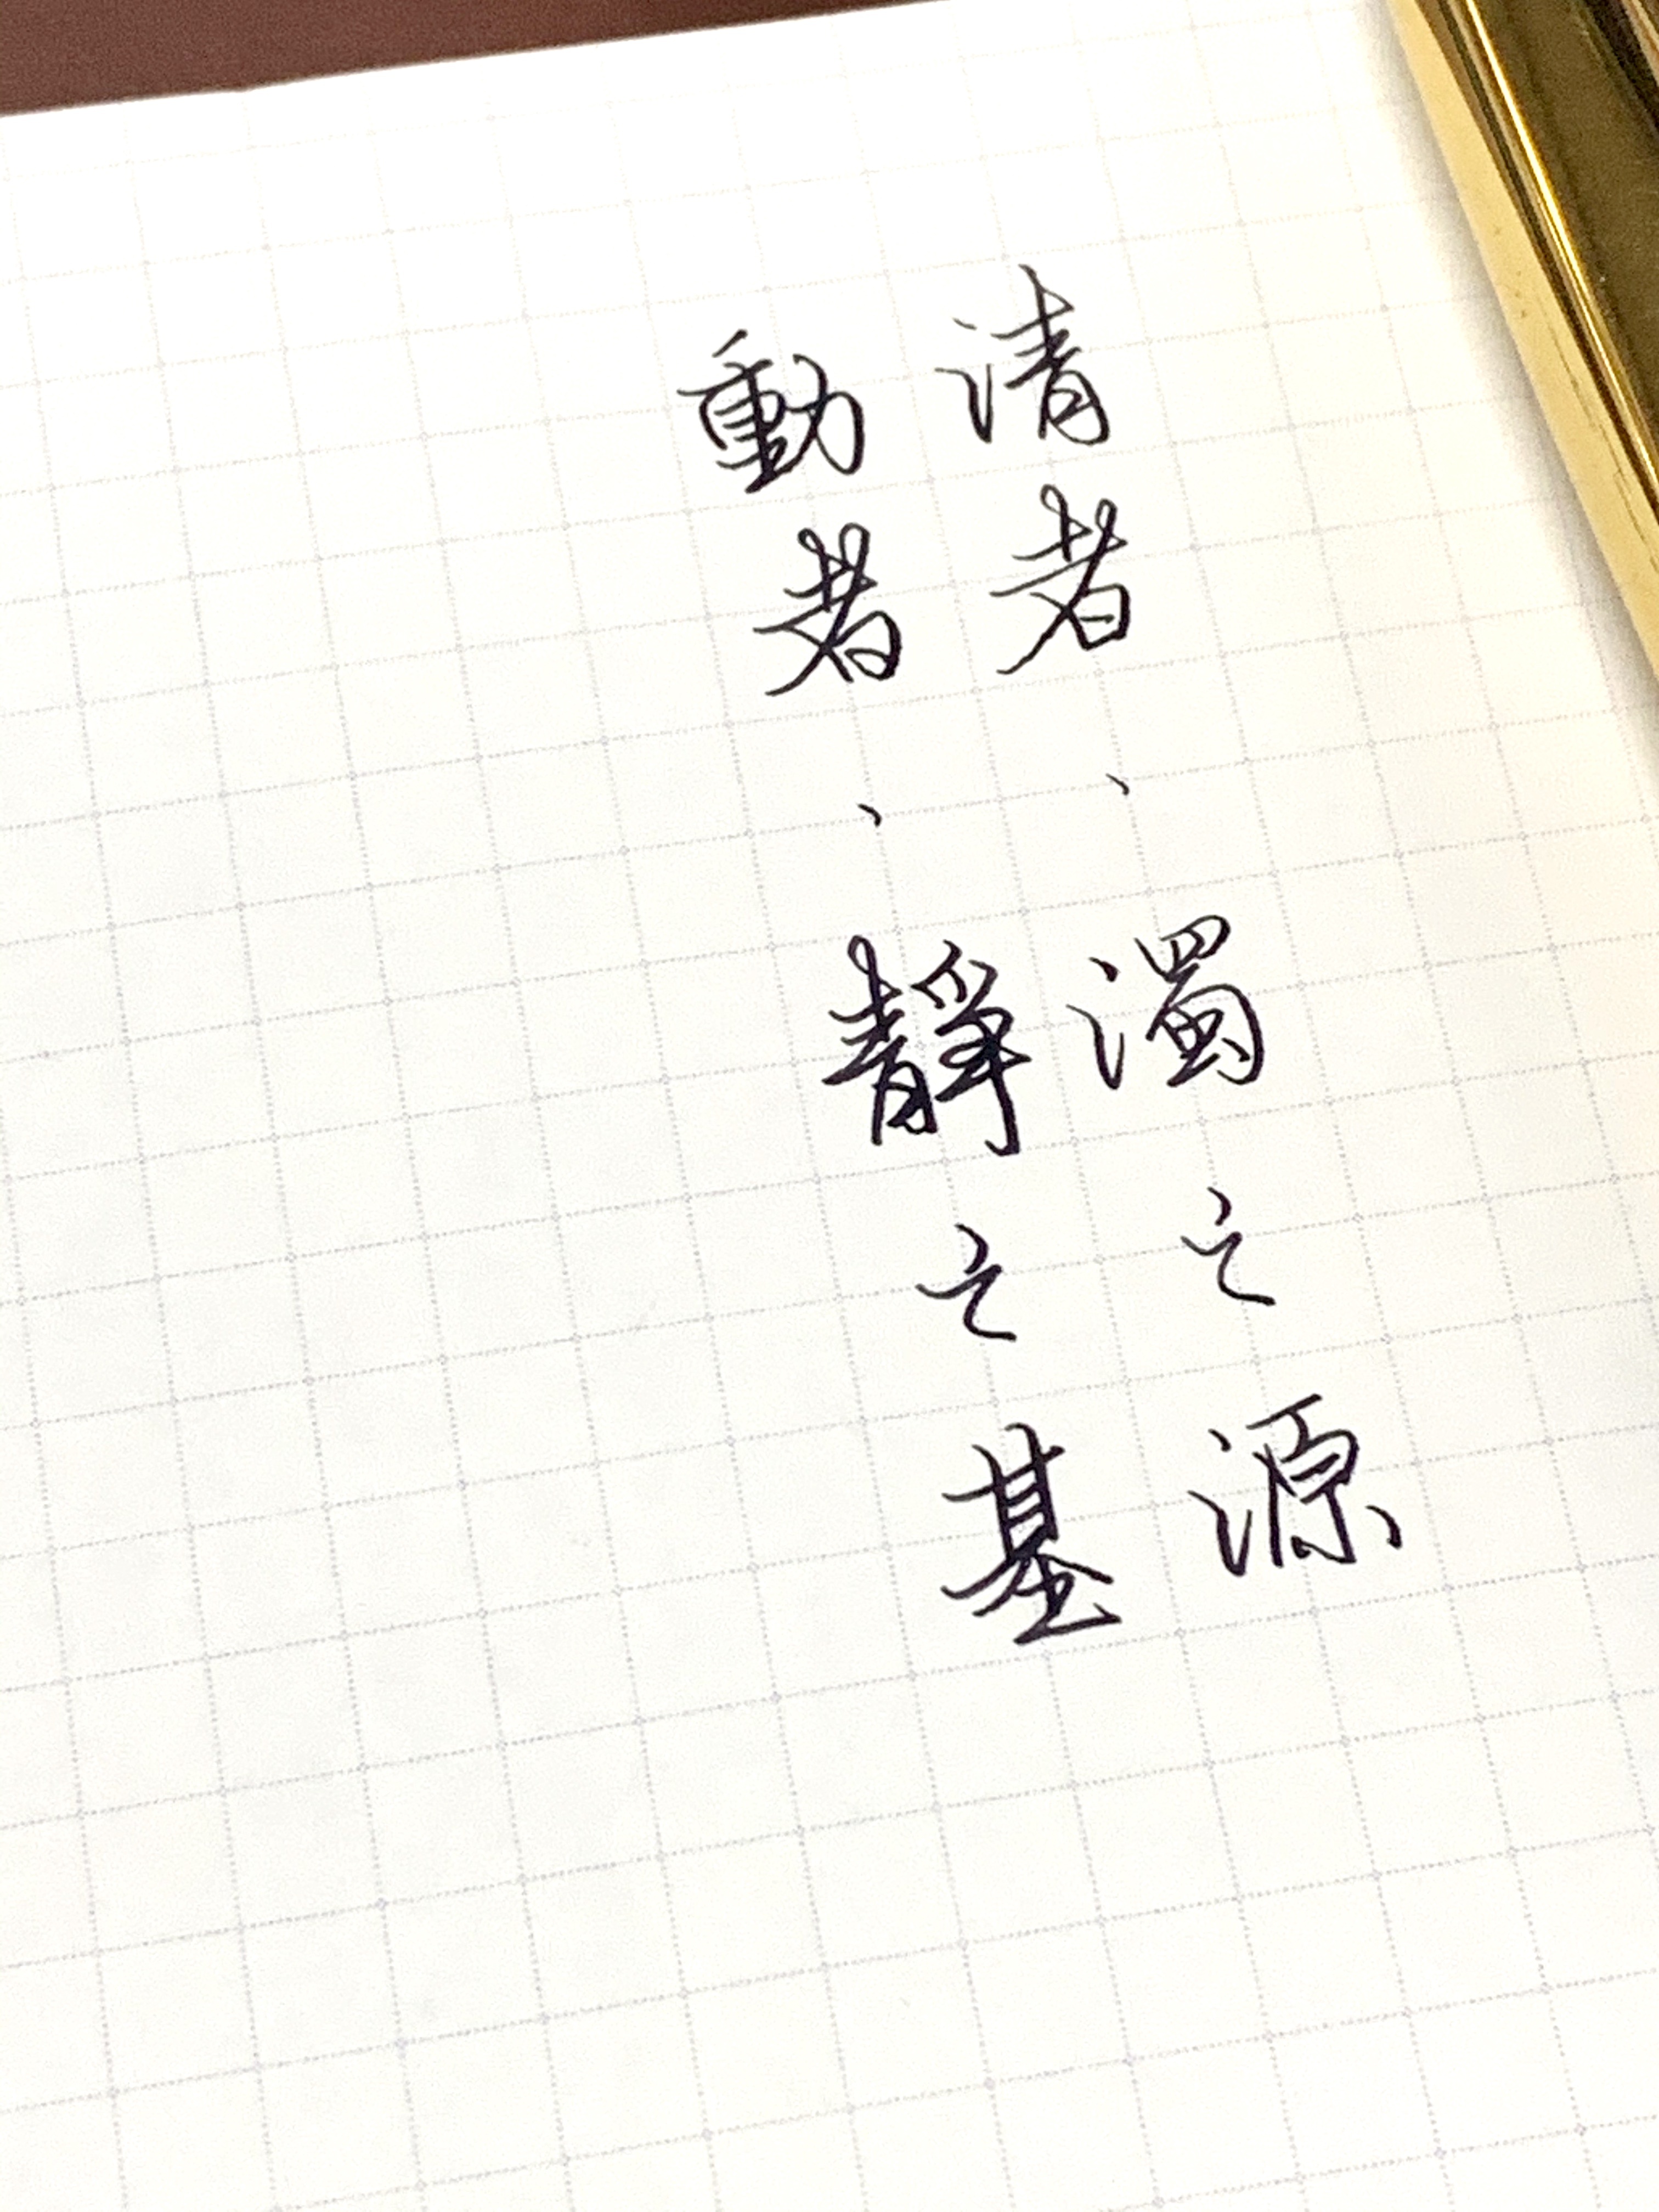 清者、濁之源
動者、靜之基